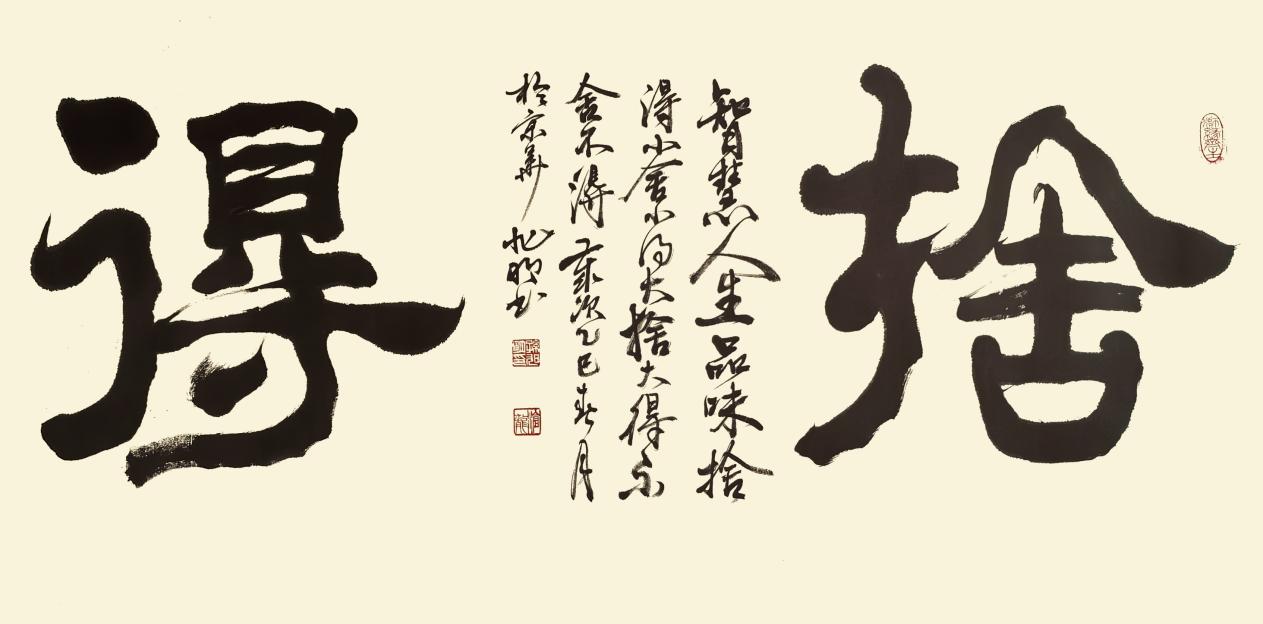 捨
智慧人生品味捨
得小舍小得大捨大得不
舍不得歲次乙巳春月
於京華 明书
得